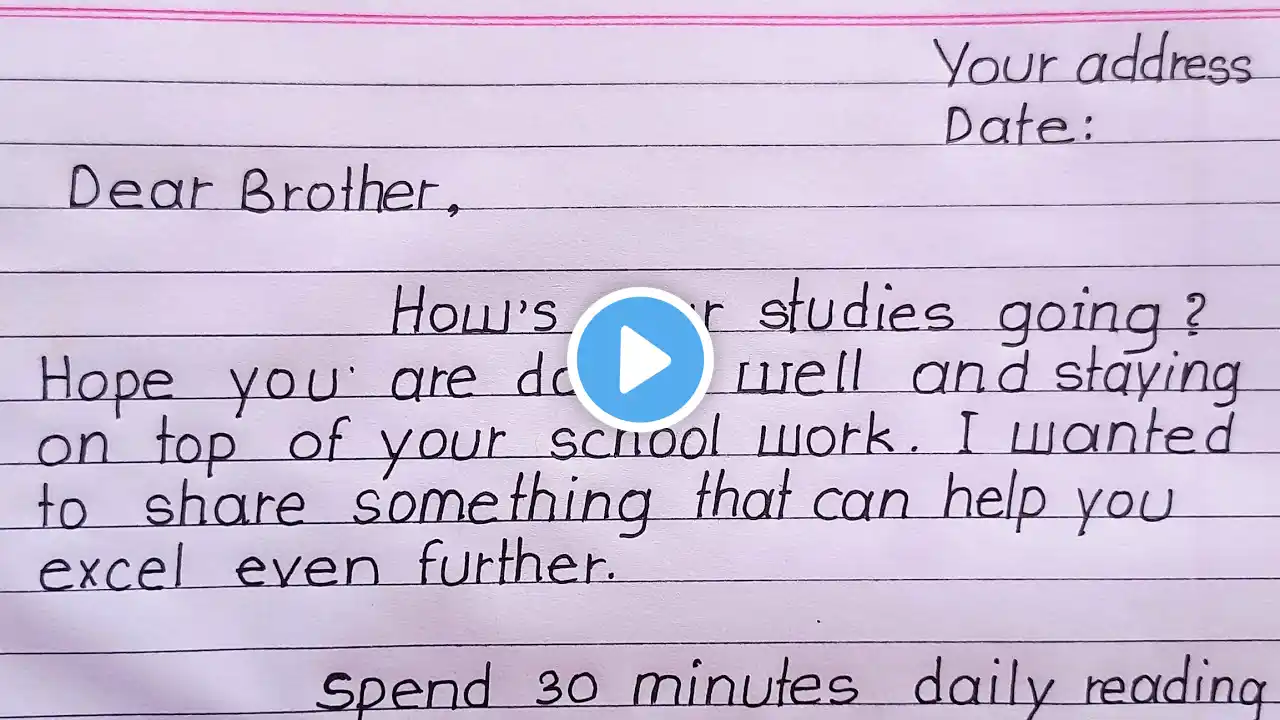 Your address
Date:
Dear Brother,
How's studies going?
Hope you are well and staying
on top of your school work. I wanted
to share something that can help you
excel even further.
spend 30 minutes daily reading